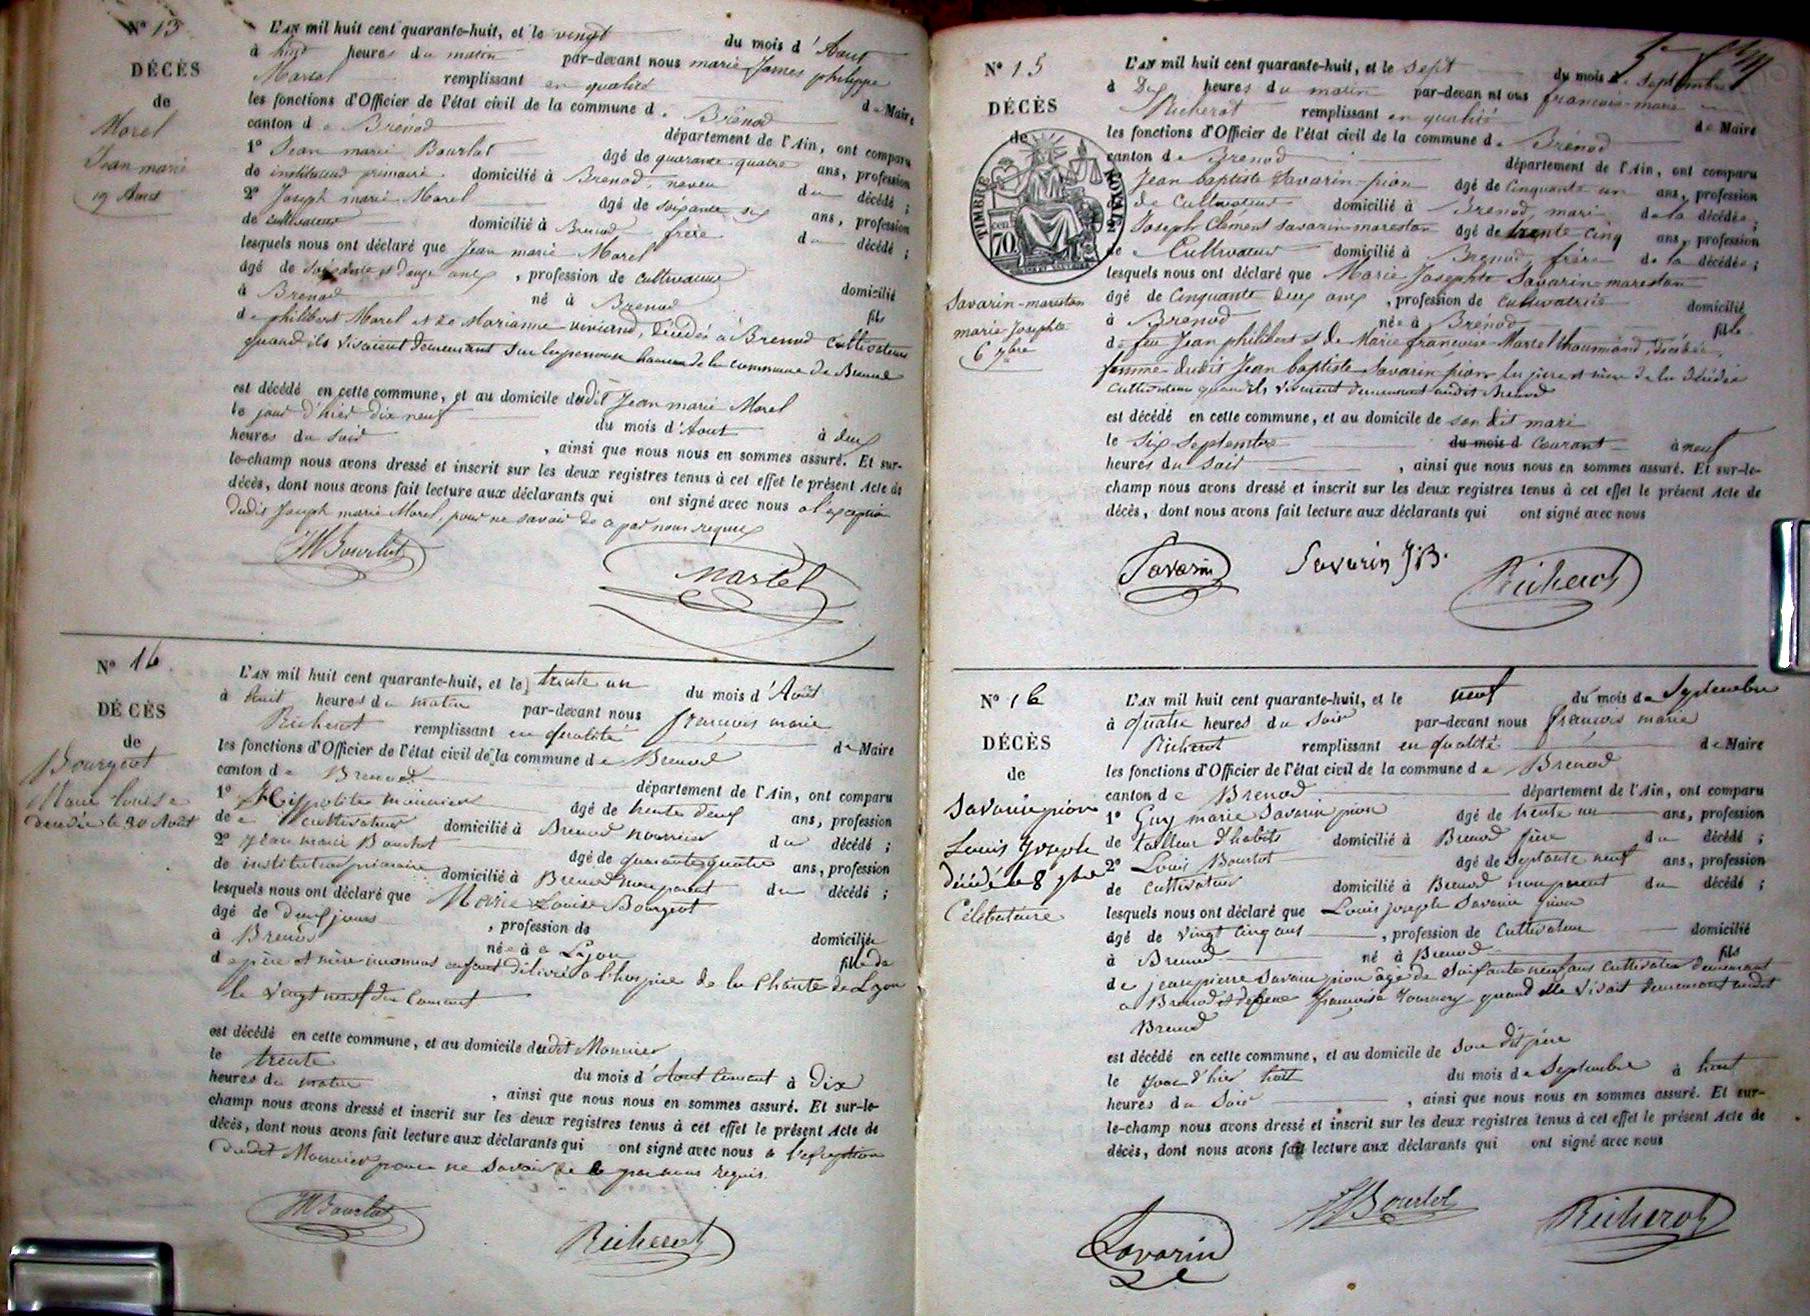 N° 13
DÉCÈS
de
Morel
Jean marie
19 Aout
L'AN mil huit cent quarante-huit, et le vingt du mois d'Aout
à huit heures du matin par-devant nous marie James philippe
Martel remplissant en qualité de Maire
les fonctions d'Officier de l'état civil de la commune de Brénod
canton de Brénod département de l'Ain, ont comparu
1° Jean marie Bourlot âgé de quarante quatre ans, profession
de instituteur primaire domicilié à Brenod, neveu du décédé ;
2° Joseph marie Morel âgé de soixante six ans, profession
de cultivateur domicilié à Brenod frère du décédé ;
lesquels nous ont déclaré que Jean marie Morel
âgé de soixante et douze ans, profession de cultivateur domicilié
à Brenod né à Brenod fils
de philibert Morel et de Marianne viviand, décédés à Brenod cultivateurs
quand ils vivaient demeurant de la commune de Brenod
est décédé en cette commune, et au domicile dudit Jean marie Morel
le jour d'hier dix neuf du mois d'Aout à deux
heures du soir, ainsi que nous nous en sommes assuré. Et sur-
le-champ nous avons dressé et inscrit sur les deux registres tenus à cet effet le présent Acte de
décès, dont nous avons fait lecture aux déclarants qui ont signé avec nous a l'exception
dudit Joseph marie Morel, pour ne savoir de ce par nous requis
JM Bourlot
Martel
N° 16
DÉCÈS
de
Bourgeot
Marie louise
décédée le 30 Août
L'AN mil huit cent quarante-huit, et le trente un du mois d'Août
à huit heures du matin par-devant nous françois marie
Richerot remplissant en qualité de Maire
les fonctions d'Officier de l'état civil de la commune de Brenod
canton de Brenod département de l'Ain, ont comparu
1° Hippolite âgé de trente deux ans, profession
de cultivateur domicilié à Brenod nourricier du décédé ;
2° Jean marie Bourlot âgé de quarante quatre ans, profession
de instituteur primaire domicilié à Brenod non parent du décédé ;
lesquels nous ont déclaré que Marie Louise Bourgeot
âgé de deux jours, profession de domiciliée
à Brenod née à a Lyon fille de
de père et mère inconnus enfant délivré a l'hospice de la Charité de Lyon
le vingt neuf du Courant
est décédé en cette commune, et au domicile dudit Monnier
le trente du mois d'Aout Courant à Dix
heures du matin, ainsi que nous nous en sommes assuré. Et sur-le-
champ nous avons dressé et inscrit sur les deux registres tenus à cet effet le présent Acte de
décès, dont nous avons fait lecture aux déclarants qui ont signé avec nous a l'exception
dudit Monnier pour ne savoir de ce par nous requis.
JM Bourlot
Richerot
N° 15
DÉCÈS
de
TIMBRE ROYAL
70
Savarin-marestan
marie josephte
6 7bre
L'AN mil huit cent quarante-huit, et le sept du mois de septembre
à Dix heures du matin par-devan nt ous françois-marie
Richerot remplissant en qualité de Maire
les fonctions d'Officier de l'état civil de la commune de Brénod
canton de Brenod département de l'Ain, ont comparu
Jean baptiste Savarin-pion âgé de Cinquante un ans, profession
de Cultivateur domicilié à Brenod, mari de la décédée ;
Joseph Clément savarin-marestan âgé de trente cinq ans, profession
de Cultivateur domicilié à Brenod, frère de la décédée ;
lesquels nous ont déclaré que Marie Josephte Savarin marestan
âgé de Cinquante deux ans, profession de cultivatrice domicilié
à Brenod née à Brénod fille
de feu Jean philibert et de Marie françoise Martel thoumiand, décédée,
femme dudit Jean baptiste Savarin pion les père et mère de la décédée
cultivateurs quand ils vivaient demeurant audit Brenod
est décédé en cette commune, et au domicile de son dit mari
le six septembre du mois d courant à neuf
heures du soir, ainsi que nous nous en sommes assuré. Et sur-le-
champ nous avons dressé et inscrit sur les deux registres tenus à cet effet le présent Acte de
décès, dont nous avons fait lecture aux déclarants qui ont signé avec nous
Savarin Savarin J.B. Richerot
N° 16
DÉCÈS
de
Savarin pion
Louis Joseph
décédé le 8 7bre
Célibataire
L'AN mil huit cent quarante-huit, et le neuf du mois de Septembre
à quatre heures du Soir par-devant nous françois marie
Richerot remplissant en qualité de Maire
les fonctions d'Officier de l'état civil de la commune de Brenod
canton de Brenod département de l'Ain, ont comparu
1° Guy marie Savarin pion âgé de trente un ans, profession
de tailleur d'habits domicilié à Brenod frère du décédé ;
2° Louis Bourlot âgé de Septante neuf ans, profession
de Cultivateur domicilié à Brenod non parent du décédé ;
lesquels nous ont déclaré que Louis joseph Savarin pion
âgé de vingt cinq ans, profession de Cultivateur domicilié
à Brenod né à Brenod fils
de jean pierre Savarin pion âgé de Soixante neuf ans cultivateur demeurant
a Brenod et de feue françoise quand elle vivait demeurant audit
Brenod
est décédé en cette commune, et au domicile de Son dit père
le jour d'hier huit du mois de Septembre à huit
heures du Soir, ainsi que nous nous en sommes assuré. Et sur-
le-champ nous avons dressé et inscrit sur les deux registres tenus à cet effet le présent Acte de
décès, dont nous avons fait lecture aux déclarants qui ont signé avec nous
Savarin Bourlot Richerot